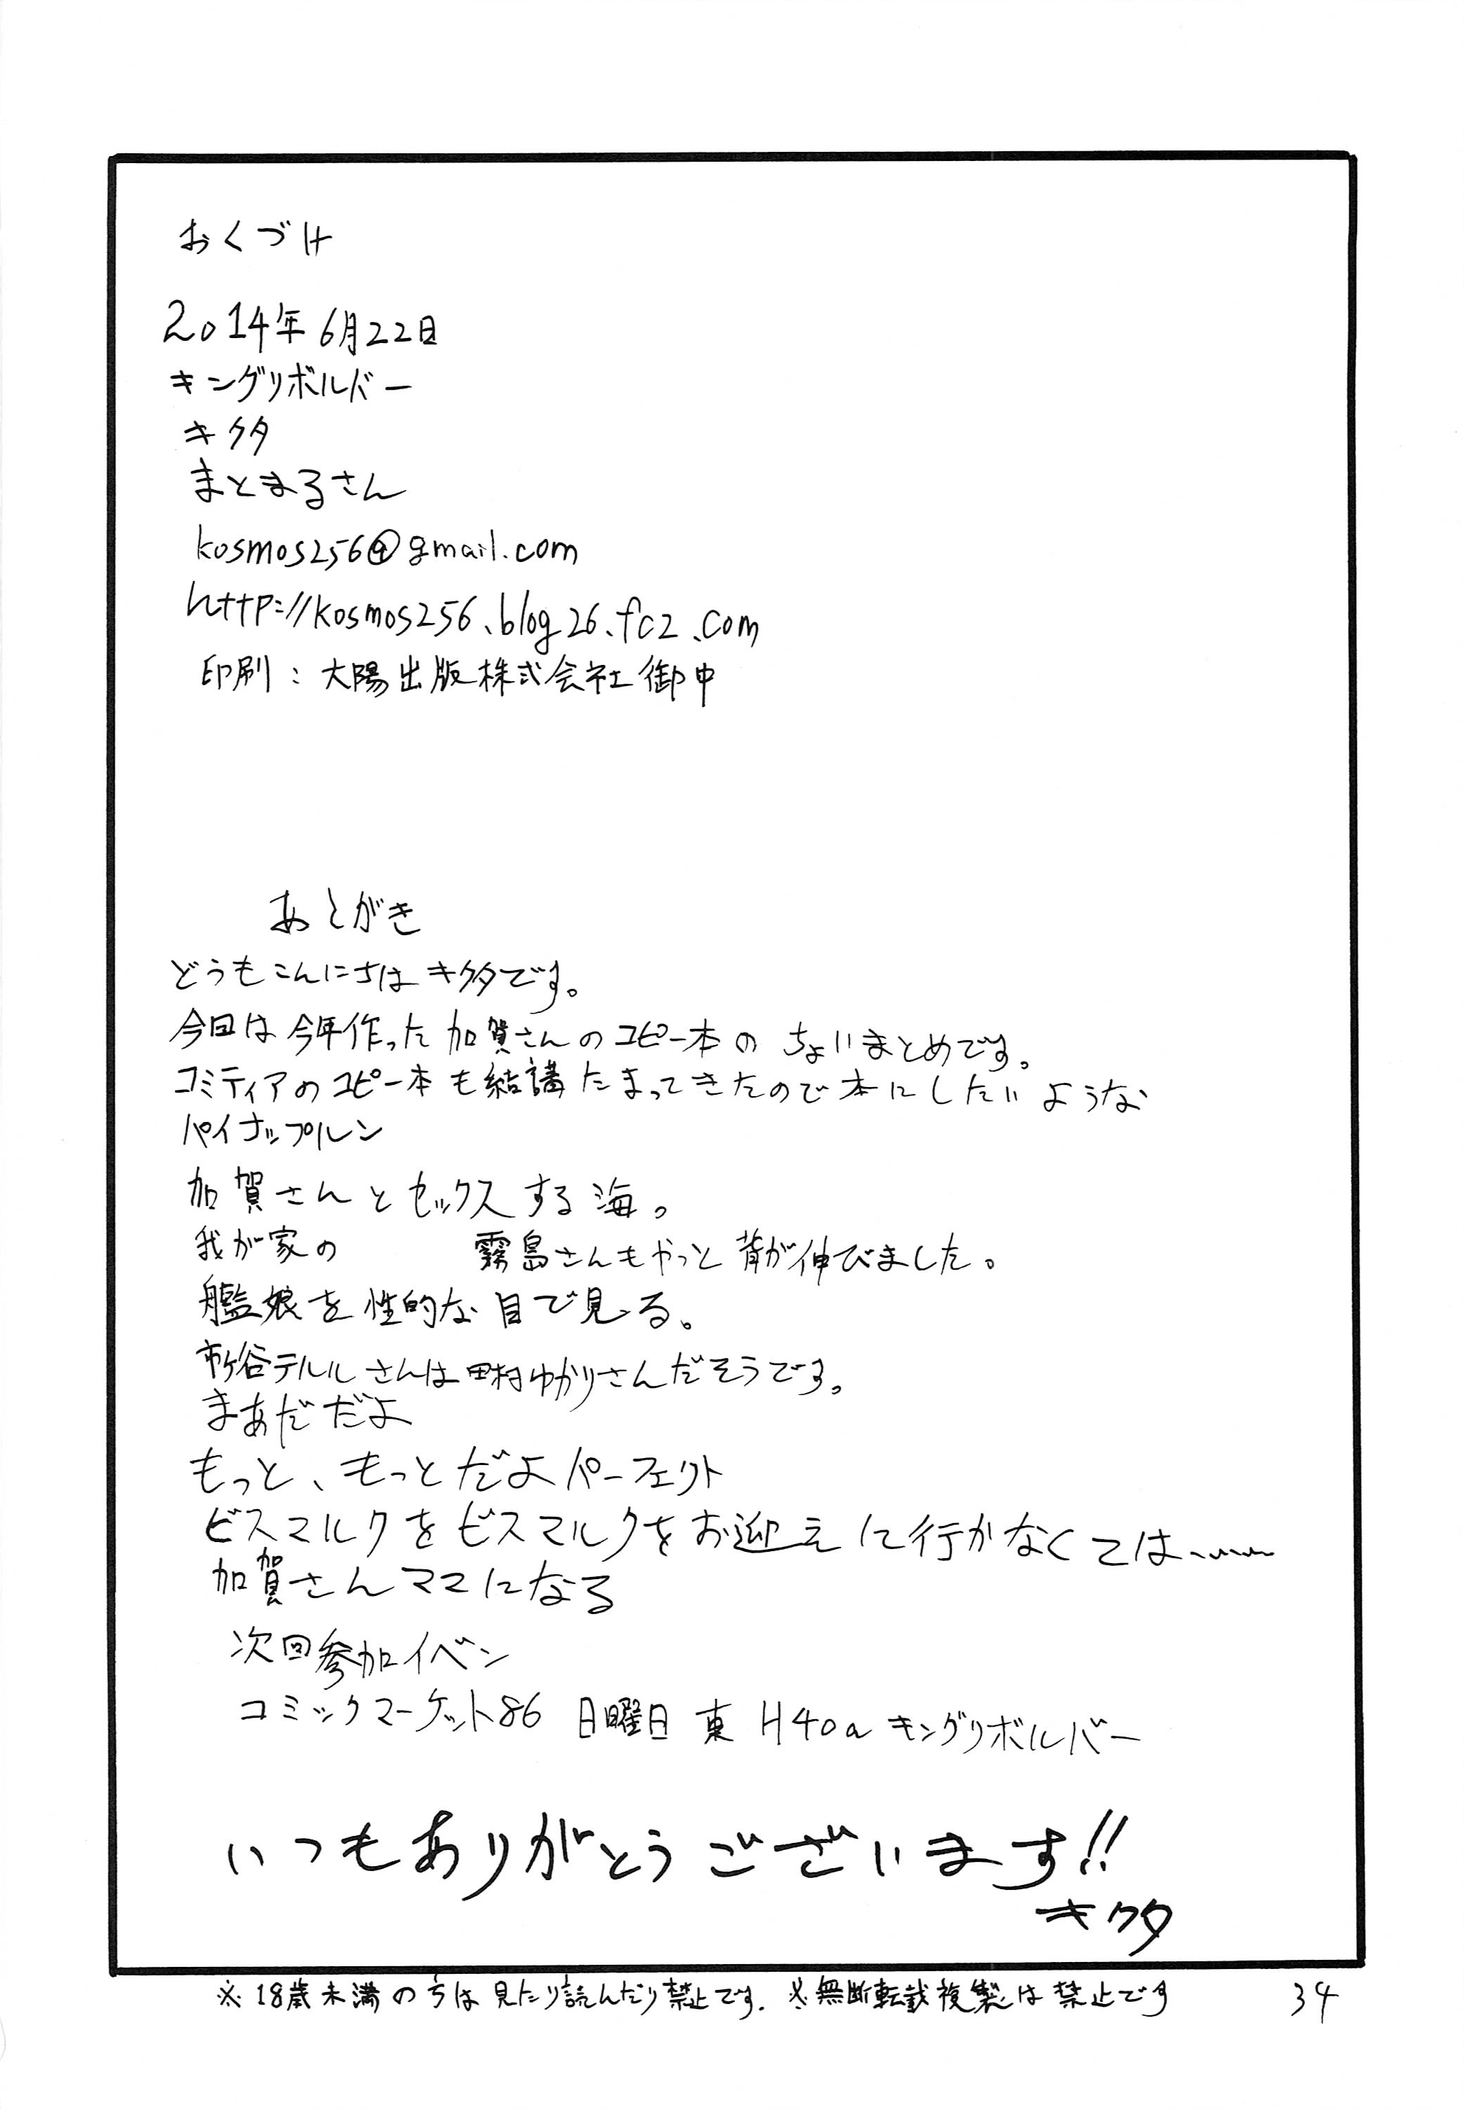 おくづけ
2014年6月22日
キングリボルバー
キクタ
まとまるさん
kosmos256@gmail.com
http://kosmos256.blog26.fc2.com
印刷：大陽出版株式会社御中
あとがき
どうもこんにちはキクタです。
今回は今年作った加賀さんのコピー本のちょいまとめです。
コミティアのコピー本も結講たまってきたので本にしたいような
パイナップルン
加賀さんとセックスする海。
我が家の 霧島さんもやっと背が伸びました。
艦娘を性的な目で見る。
市ヶ谷テルルさんは田村ゆかりさんだそうです。
まあだだよ
もっと、もっとだよパーフェクト
ビスマルクをビスマルクをお迎えに行かなくては……
加賀さんママになる
次回参加イベン
コミックマーケット86 日曜日 東 H40a キングリボルバー
いつもありがとうございます!!
キクタ
※18歳未満の方は見たり読んだり禁止です. ※無断転載複製は禁止です 34